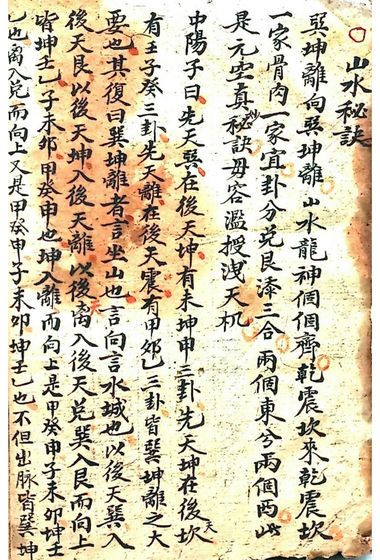 山水秘訣
巽坤離向巽坤離山水龍神個個齊乾震坎來乾震坎
一家骨肉一家宜卦分兌艮漆三合兩個東兮兩個西此
是元空真秘訣毋容濫授洩天机
中陽子曰先天巽在後天坤有未坤申三卦先天坤在後天坎
有壬子癸三卦先天離在後天震有甲卯乙三卦皆巽坤離之大
要也其復曰巽坤離者言坐山也言向言水城也以後天巽入
後天艮以後天坤入後天離以後天離入後天兌巽入艮而向上
皆坤壬乙子未卯甲癸申也坤入離而向上是甲癸申子未卯坤壬
乙也離入兌而向上又是甲癸申子未卯坤壬乙也不但出脉皆巽坤